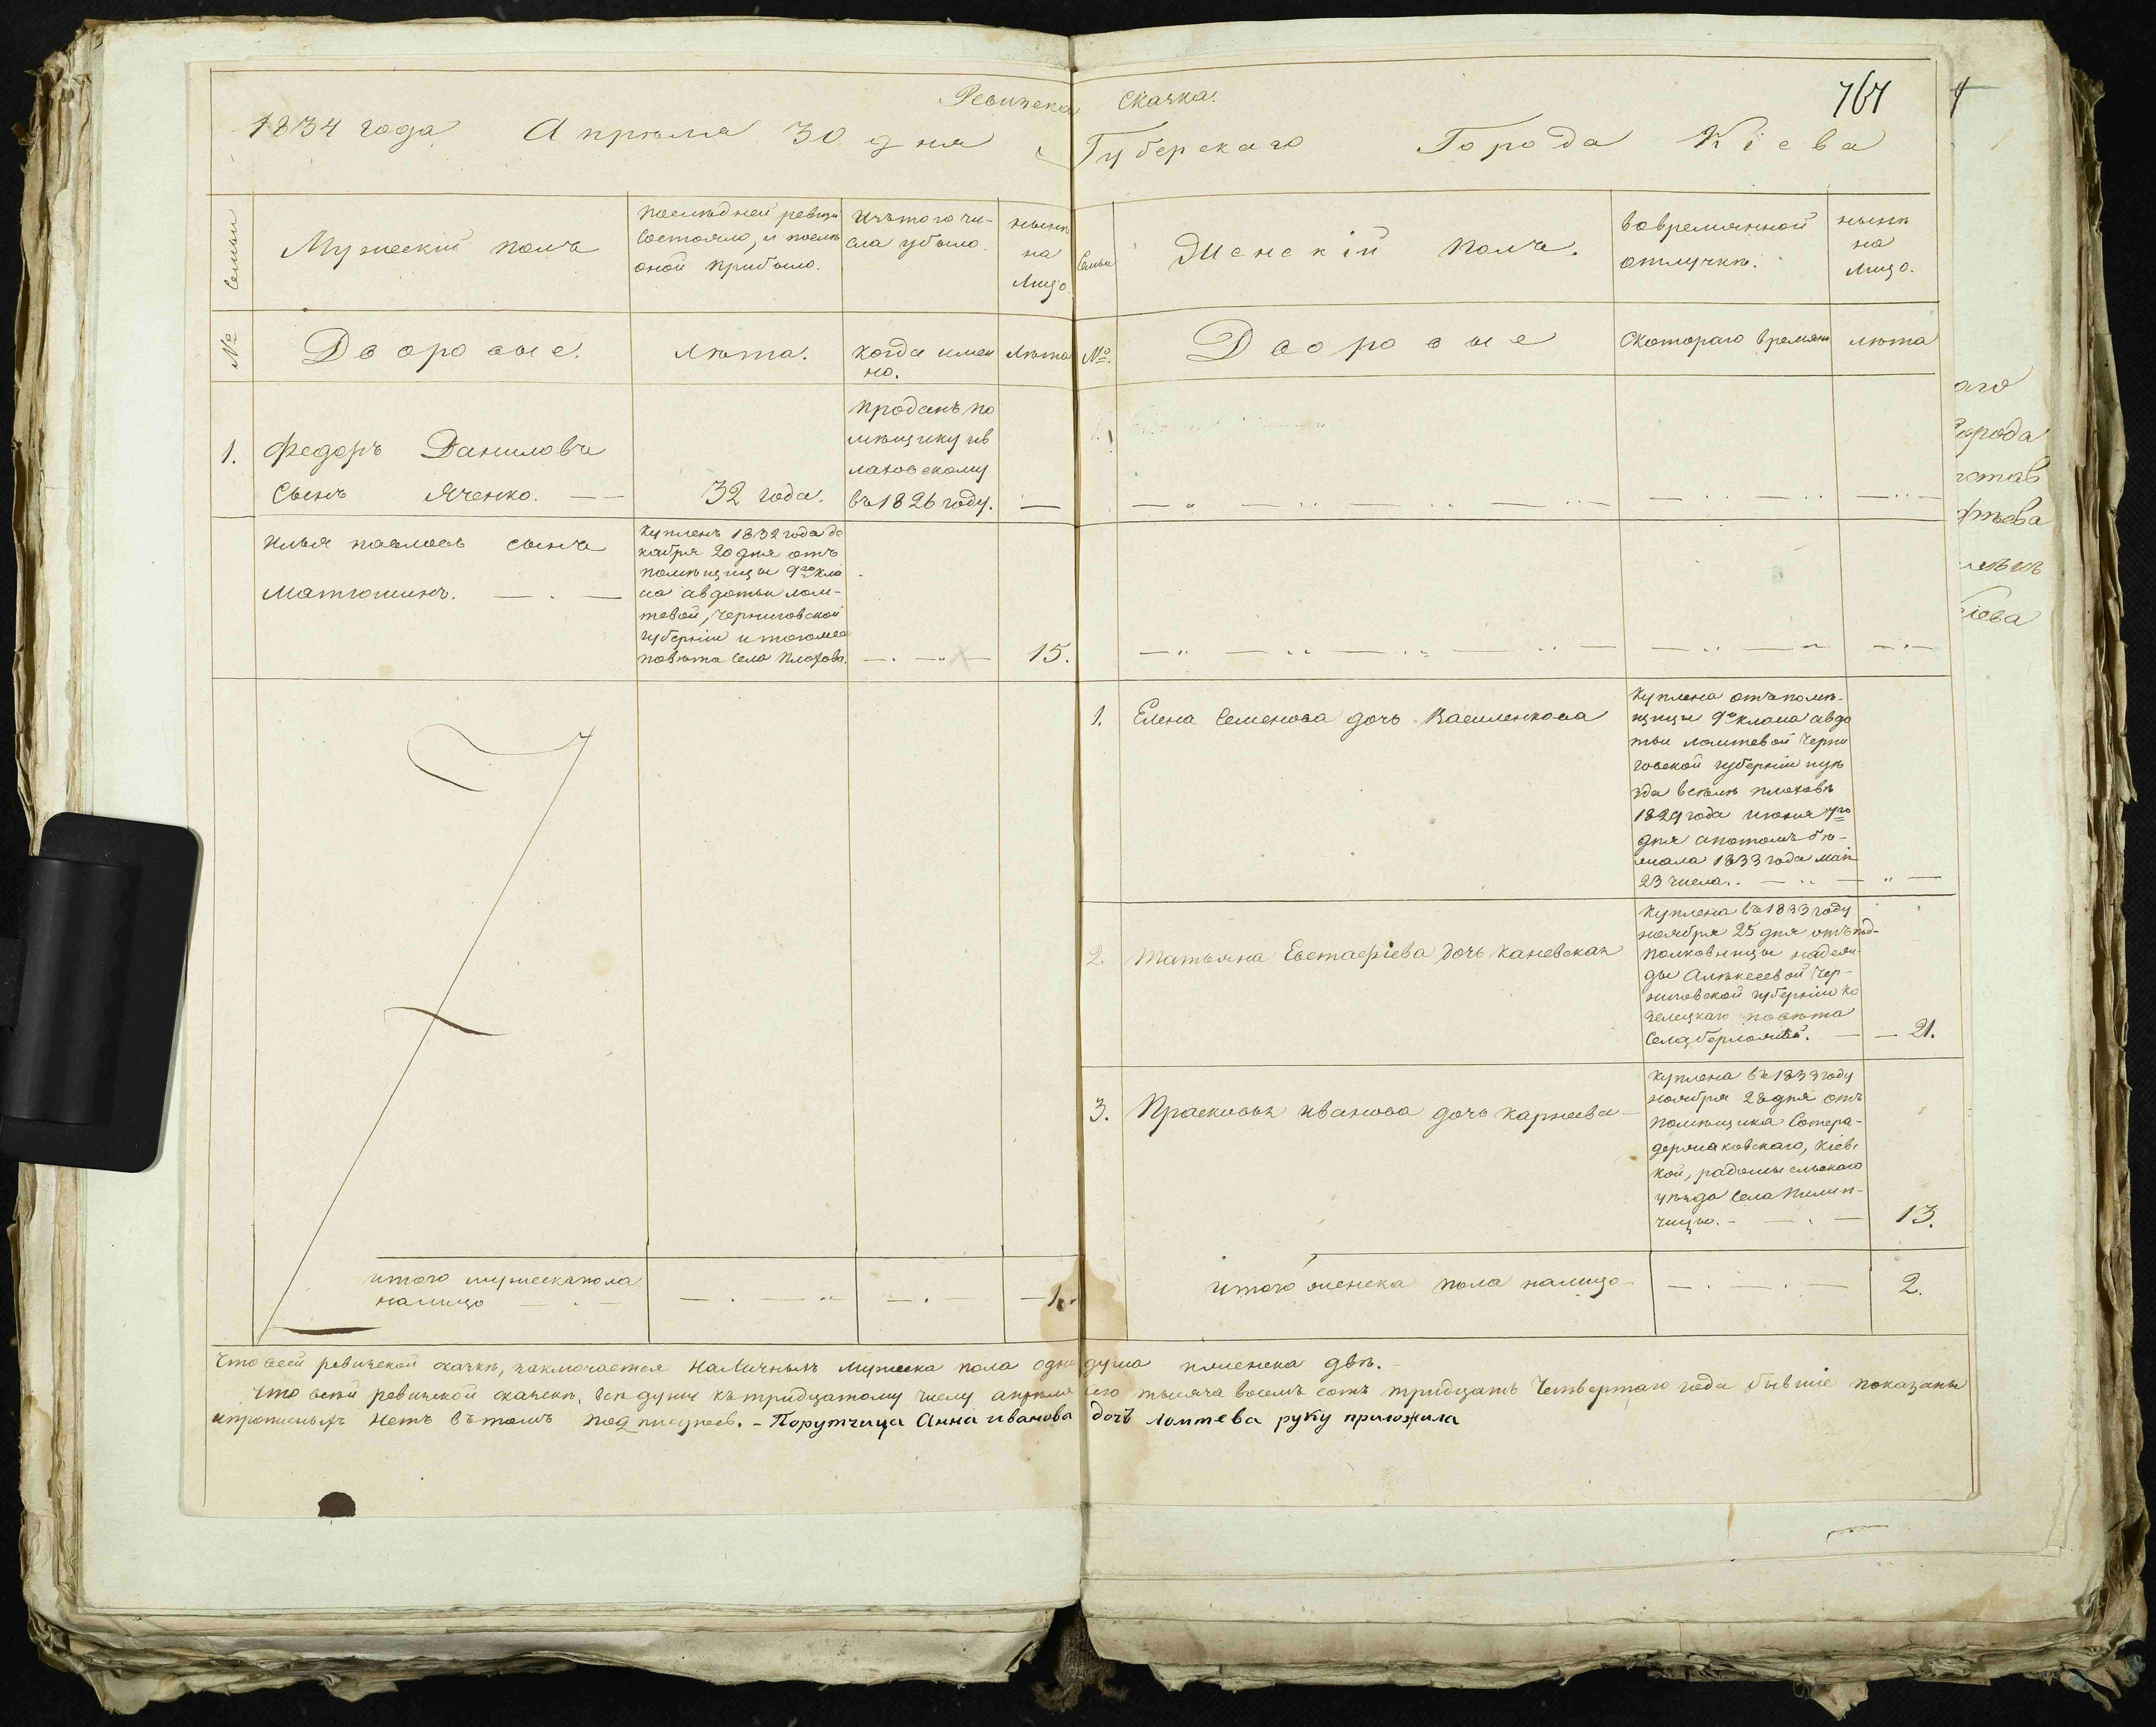 Ревизска Скаска.
767
1834 года Апрѣля 30 дня Губерскаго Города Кіева
Семьи
Мужескій полъ
последней ревизи
Состояло, и послѣ
оной прибыло.
Изъ того чи-
сла убыло.
нынѣ
на
лицо.
Семьи
Женскій полъ.
вовремянной
отлучкѣ.
нынѣ
на
лицо.
№
Дворовые.
лѣта.
когда имен
но.
лѣта
№.
Дворовые
скотораго времяни
лѣта
1. Федоръ Даниловъ
сынъ Яченко.
32 года.
проданъ по
мѣщику
въ 1826 году.
Илья павловъ сынъ
Матюшинъ.
Купленъ 1832 года де
кабря 20 дня отъ
помѣщицы 9го кла
са авдотьи лом-
тевой, Черниговской
губерніи и тогоже
повѣта села Плохова.
15.
1. Елена Семенова дочь Василенкова
Куплена отъ помѣ-
щицы 9го класа авдо
тьи ломтевой Черни
говской губерніи
зда вселѣ плоховѣ
1829 года июня 7го
дня апотомъ бѣ-
жала 1833 года маія
23 числа.
2. Татьяна Евстафіева дочь каневская
Куплена въ 1833 году
ноября 25 дня отъ под-
полковницы надеж-
ды Алѣксеевой Чер-
ниговской губерніи ко
зелецкаго повѣта
3. Прасковья иванова дочь карнеева
21.
Куплена въ 1833 году
ноября 28 дня отъ
помѣщика
Кіевс
кой, радомысльскаго
уѣзда села Пилип-
чицы.
13.
итого мужеска пола
налицо
1.
итого женска пола налицо
2.
Что всей ревизской скаскѣ, заключается наличныхъ мужеска пола одна душа иженска двѣ.
Что всей ревизской скаскѣ, всѣ души къ тридцатому числу апрѣля сего тысяча восемь сотъ тридцать Четвертаго года бывшіе показаны
ипрописныхъ нетъ въ томъ подписуюсь. - Порутчица Анна иванова дочь Ломтева руку приложила
аго
Города
Кіева